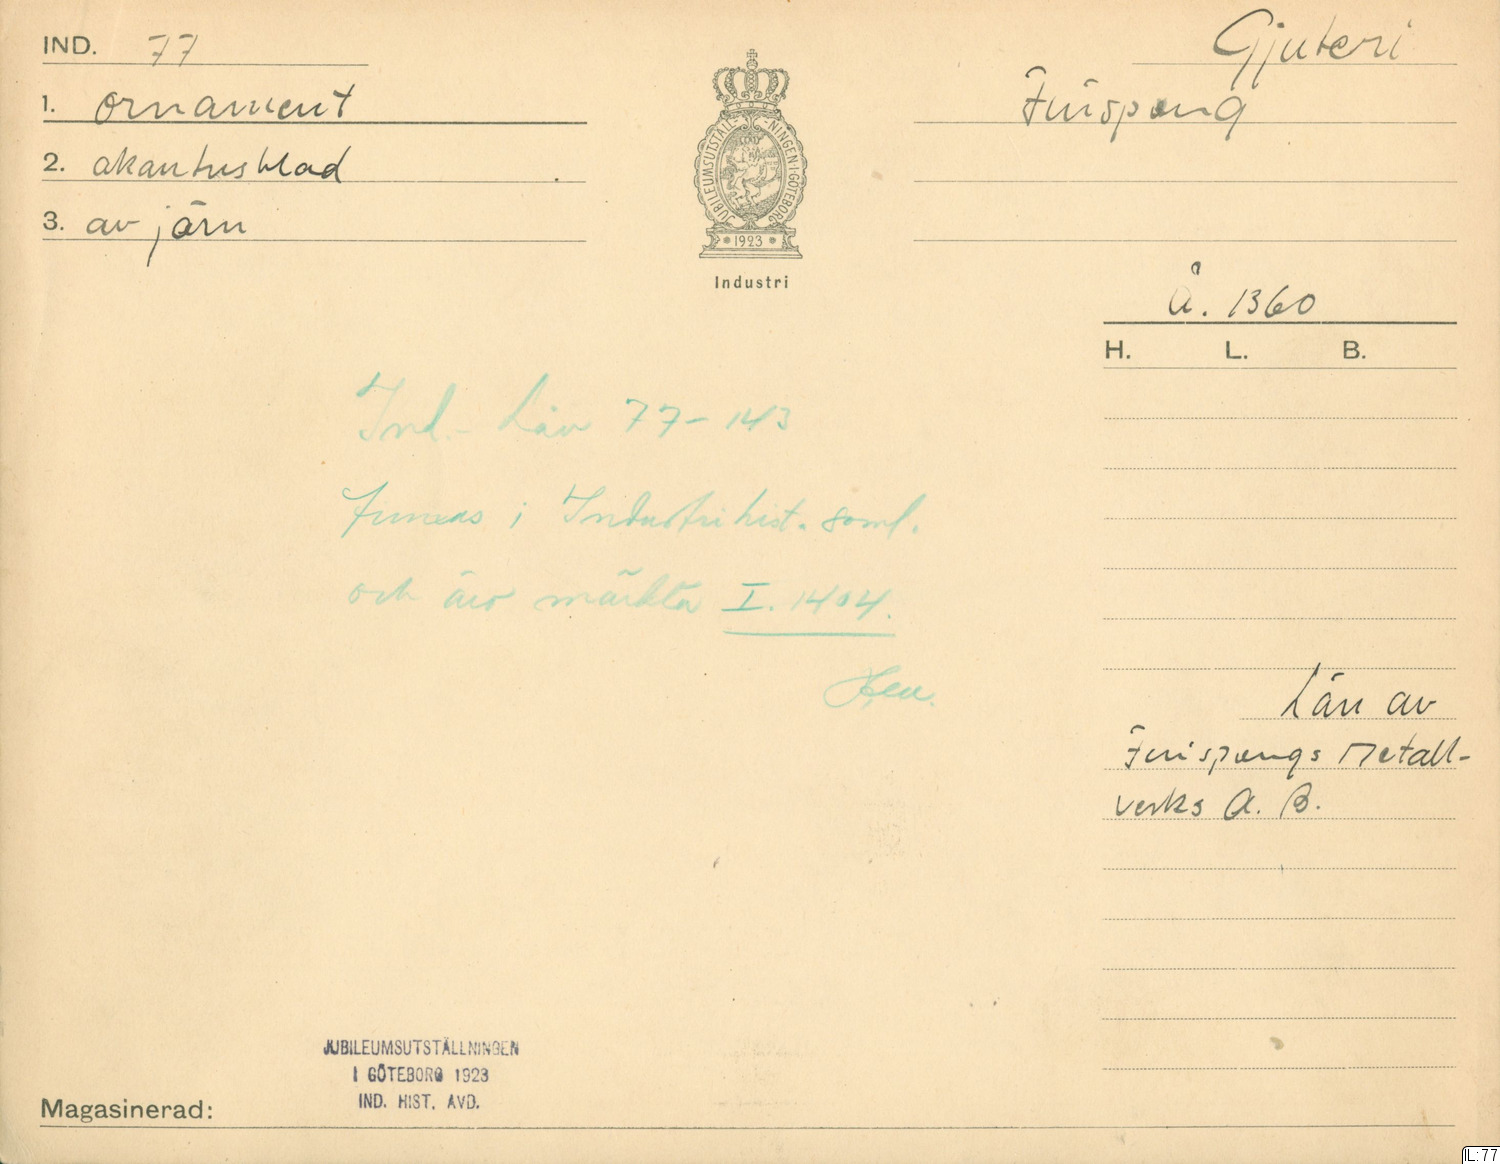 IND. 77
Gjuteri
1. ornament
Finspong
2. akantusblad
3. av järn
JUBILEUMSUTSTÄLLNINGEN·I·GÖTEBORG
1923
Industri
Å. 1360
H. L. B.
Ind. - Lån 77-143
finnas i Industrihist. saml.
och äro märkta I. 1404.
Lån av
Finspongs Metall-
verks A. B.
JUBILEUMSUTSTÄLLNINGEN
I GÖTEBORG 1923
IND. HIST. AVD.
Magasinerad:
IL:77